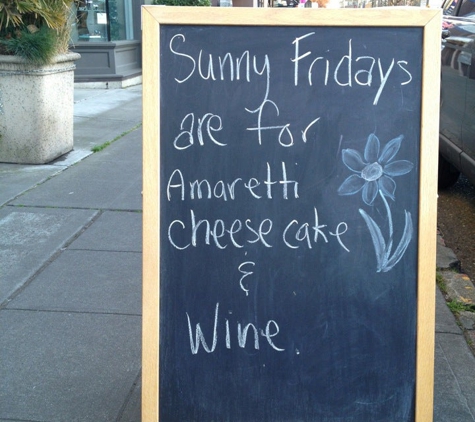 Sunny Fridays
are for
Amaretti
cheese cake
&
Wine.